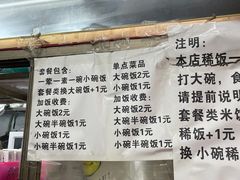 套餐包含:
一荤一素一碗小碗饭
套餐类换大碗饭+1元
加饭收费:
大碗饭2元
大碗半碗饭1元
小碗饭1元
小碗半碗饭1元
单点菜品
大碗饭2元
小碗饭1元
加饭收费:
大碗饭2元
大碗半碗饭1元
小碗饭1元
小碗半碗饭1元
注明:
本店稀饭一
打大碗，食
请提前说明
套餐类米饭
稀饭+1元
换小碗稀